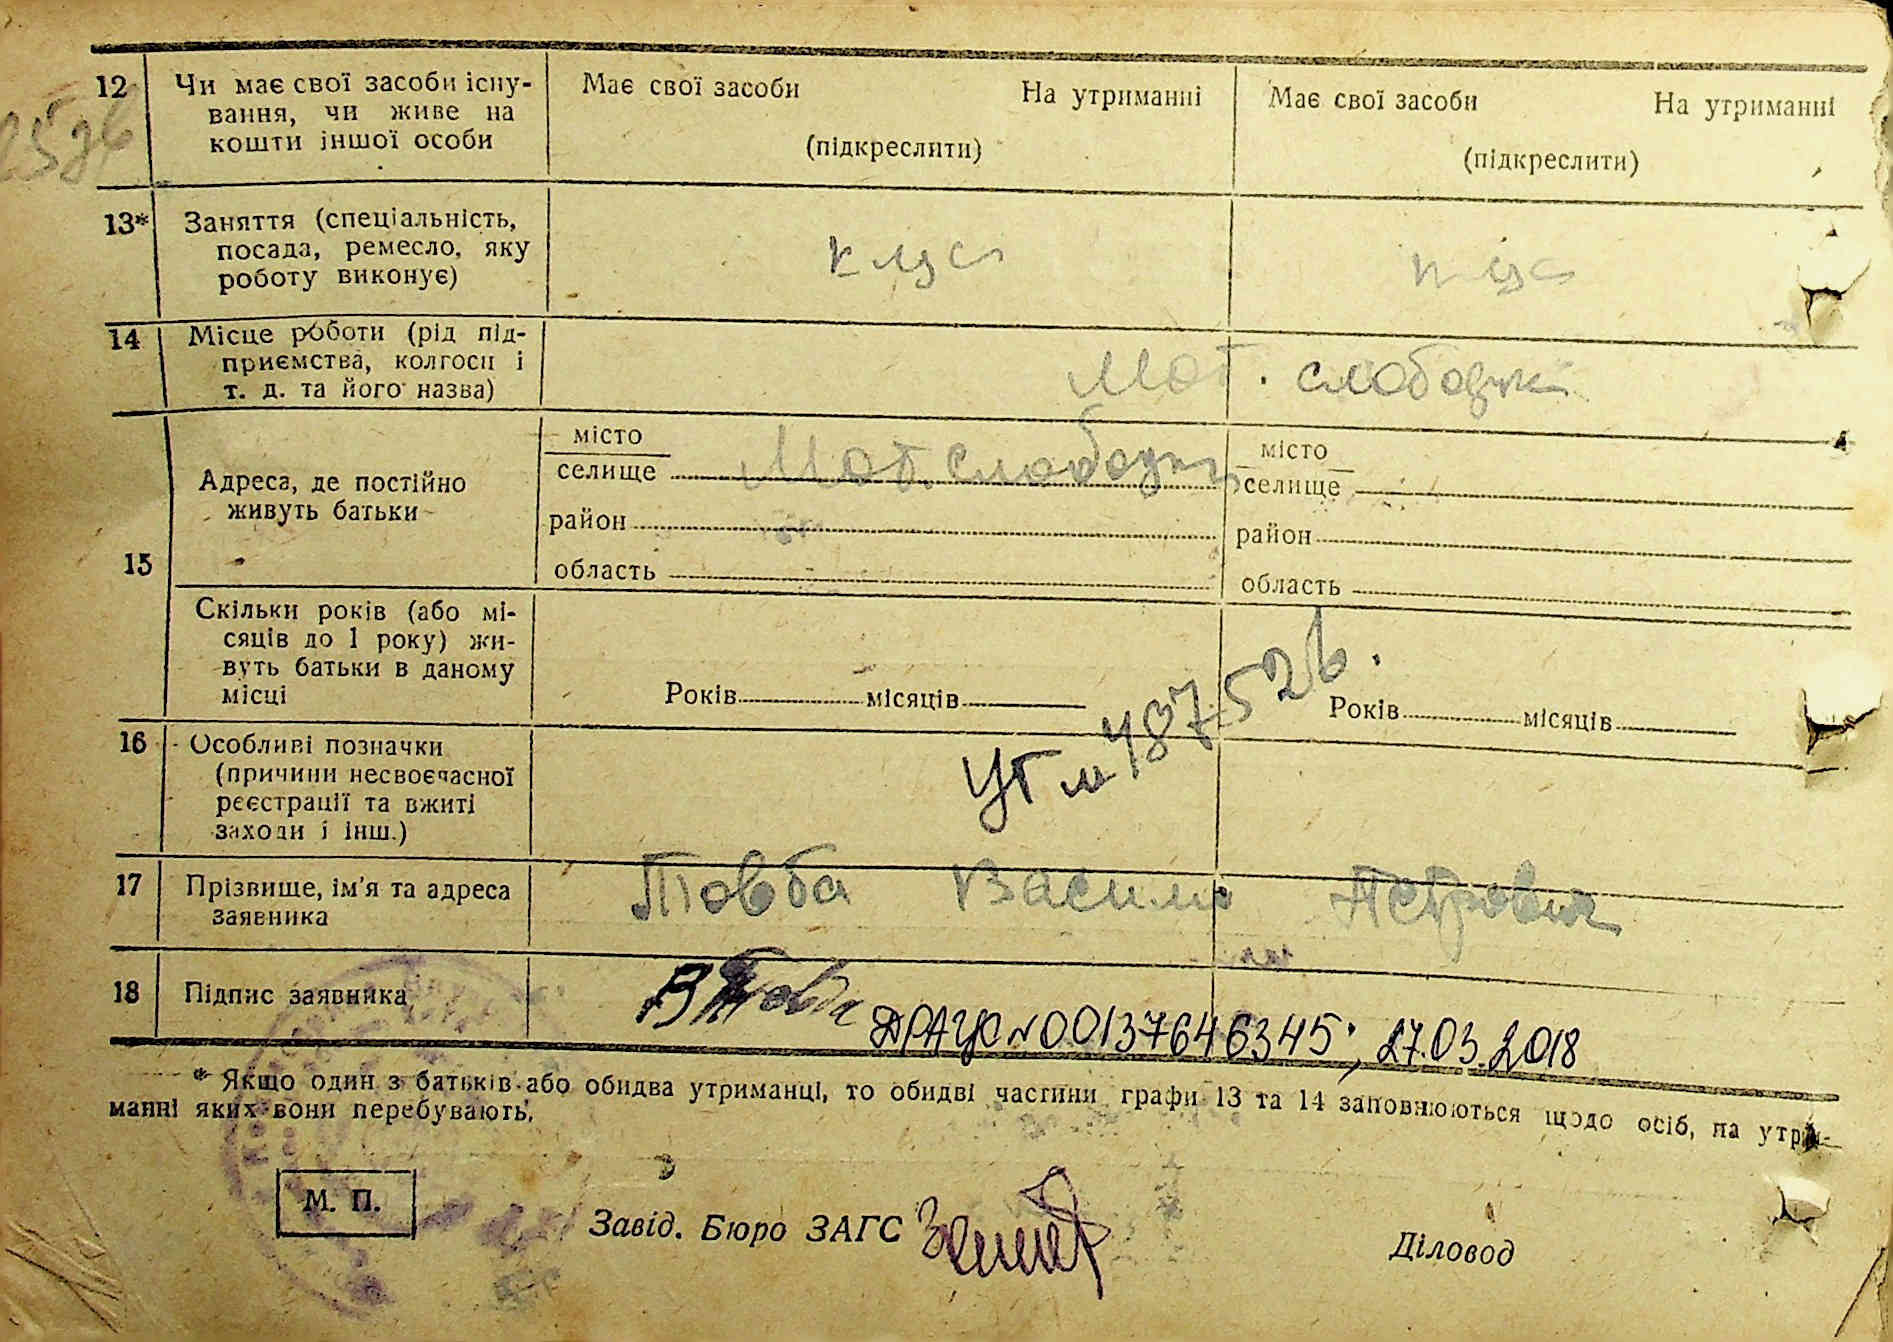 12 Чи має свої засоби існу-
вання, чи живе на
кошти іншої особи
Має свої засоби На утриманні
(підкреслити)
Має свої засоби На утриманні
(підкреслити)
13* Заняття (спеціальність,
посада, ремесло, яку
роботу виконує)
14 Місце роботи (рід під-
приємства, колгосп і
т. д. та його назва)
Мот. слободка
15
Адреса, де постійно
живуть батьки
місто
селище Мот. слободка
район
область
місто
селище
район
область
Скільки років (або мі-
сяців до 1 року) жи-
вуть батьки в даному
місці
Років місяців
Років місяців
16 Особливі позначки
(причини несвоєчасної
реєстрації та вжиті
заходи і інш.)
17 Прізвище, ім'я та адреса
заявника
Товба Василь Петрович
18 Підпис заявника
ВТовба
ДРАЦС №00137646345; 27.03.2018
* Якщо один з батьків або обидва утриманці, то обидві частини графи 13 та 14 заповнюються щодо осіб, на утри-
манні яких вони перебувають.
М. П.
Завід. Бюро ЗАГС
Діловод